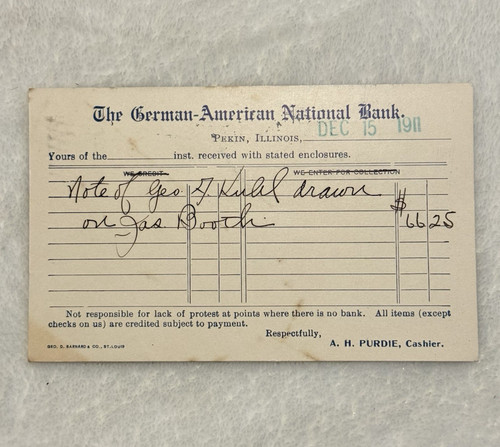 The German-American National Bank.
PEKIN, ILLINOIS, DEC 15 1911
Yours of the inst. received with stated enclosures.
WE CREDIT WE ENTER FOR COLLECTION
Note of Geo drawn
on Jas Booth $66 25
Not responsible for lack of protest at points where there is no bank. All items (except
checks on us) are credited subject to payment.
Respectfully,
A. H. PURDIE, Cashier.
GEO. D. BARNARD & CO., ST. LOUIS